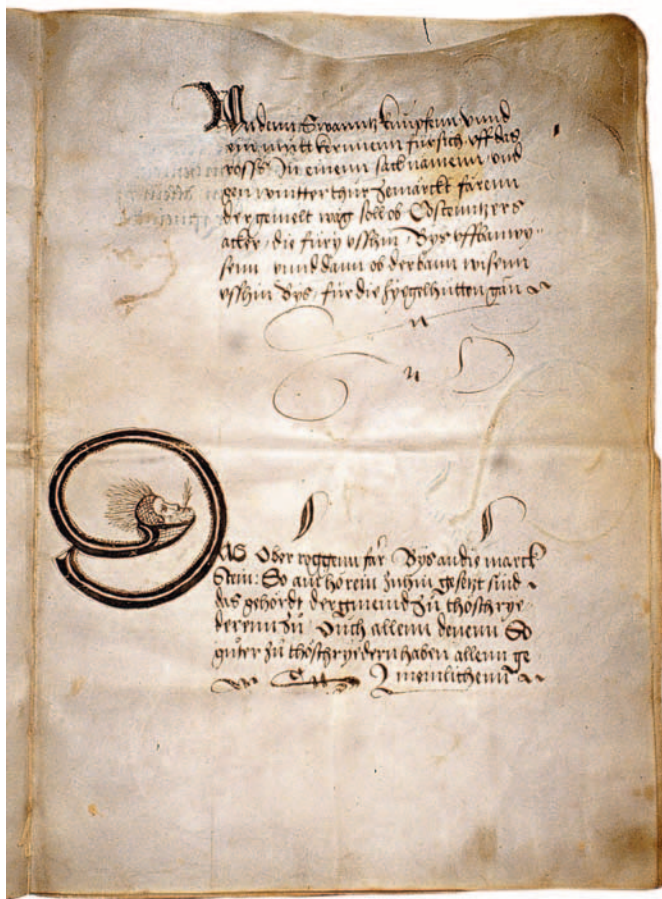 An denn Swanntz knüpfenn vnnd
ein mütt kernnenn für sich vff das
ross Jn einenn sack namenn vnd
gen wintterthur ze märckt farenn
der gemelt wäg soll ob Costenntzers
acker die fury vsshin Bys vff banwy-
senn vnnd dann ob der bann wisenn
vsshin Bys für die Zyegelhütten gan
DAs Ober roggenn far Bys an die marck
Stein So auch hörein Inhin gesetzt sind
das gehördt der gmeind zů thössrye
derenn zů Ouch allenn denenn So
gůter zů thössryedern haben allenn ge
meinlichenn